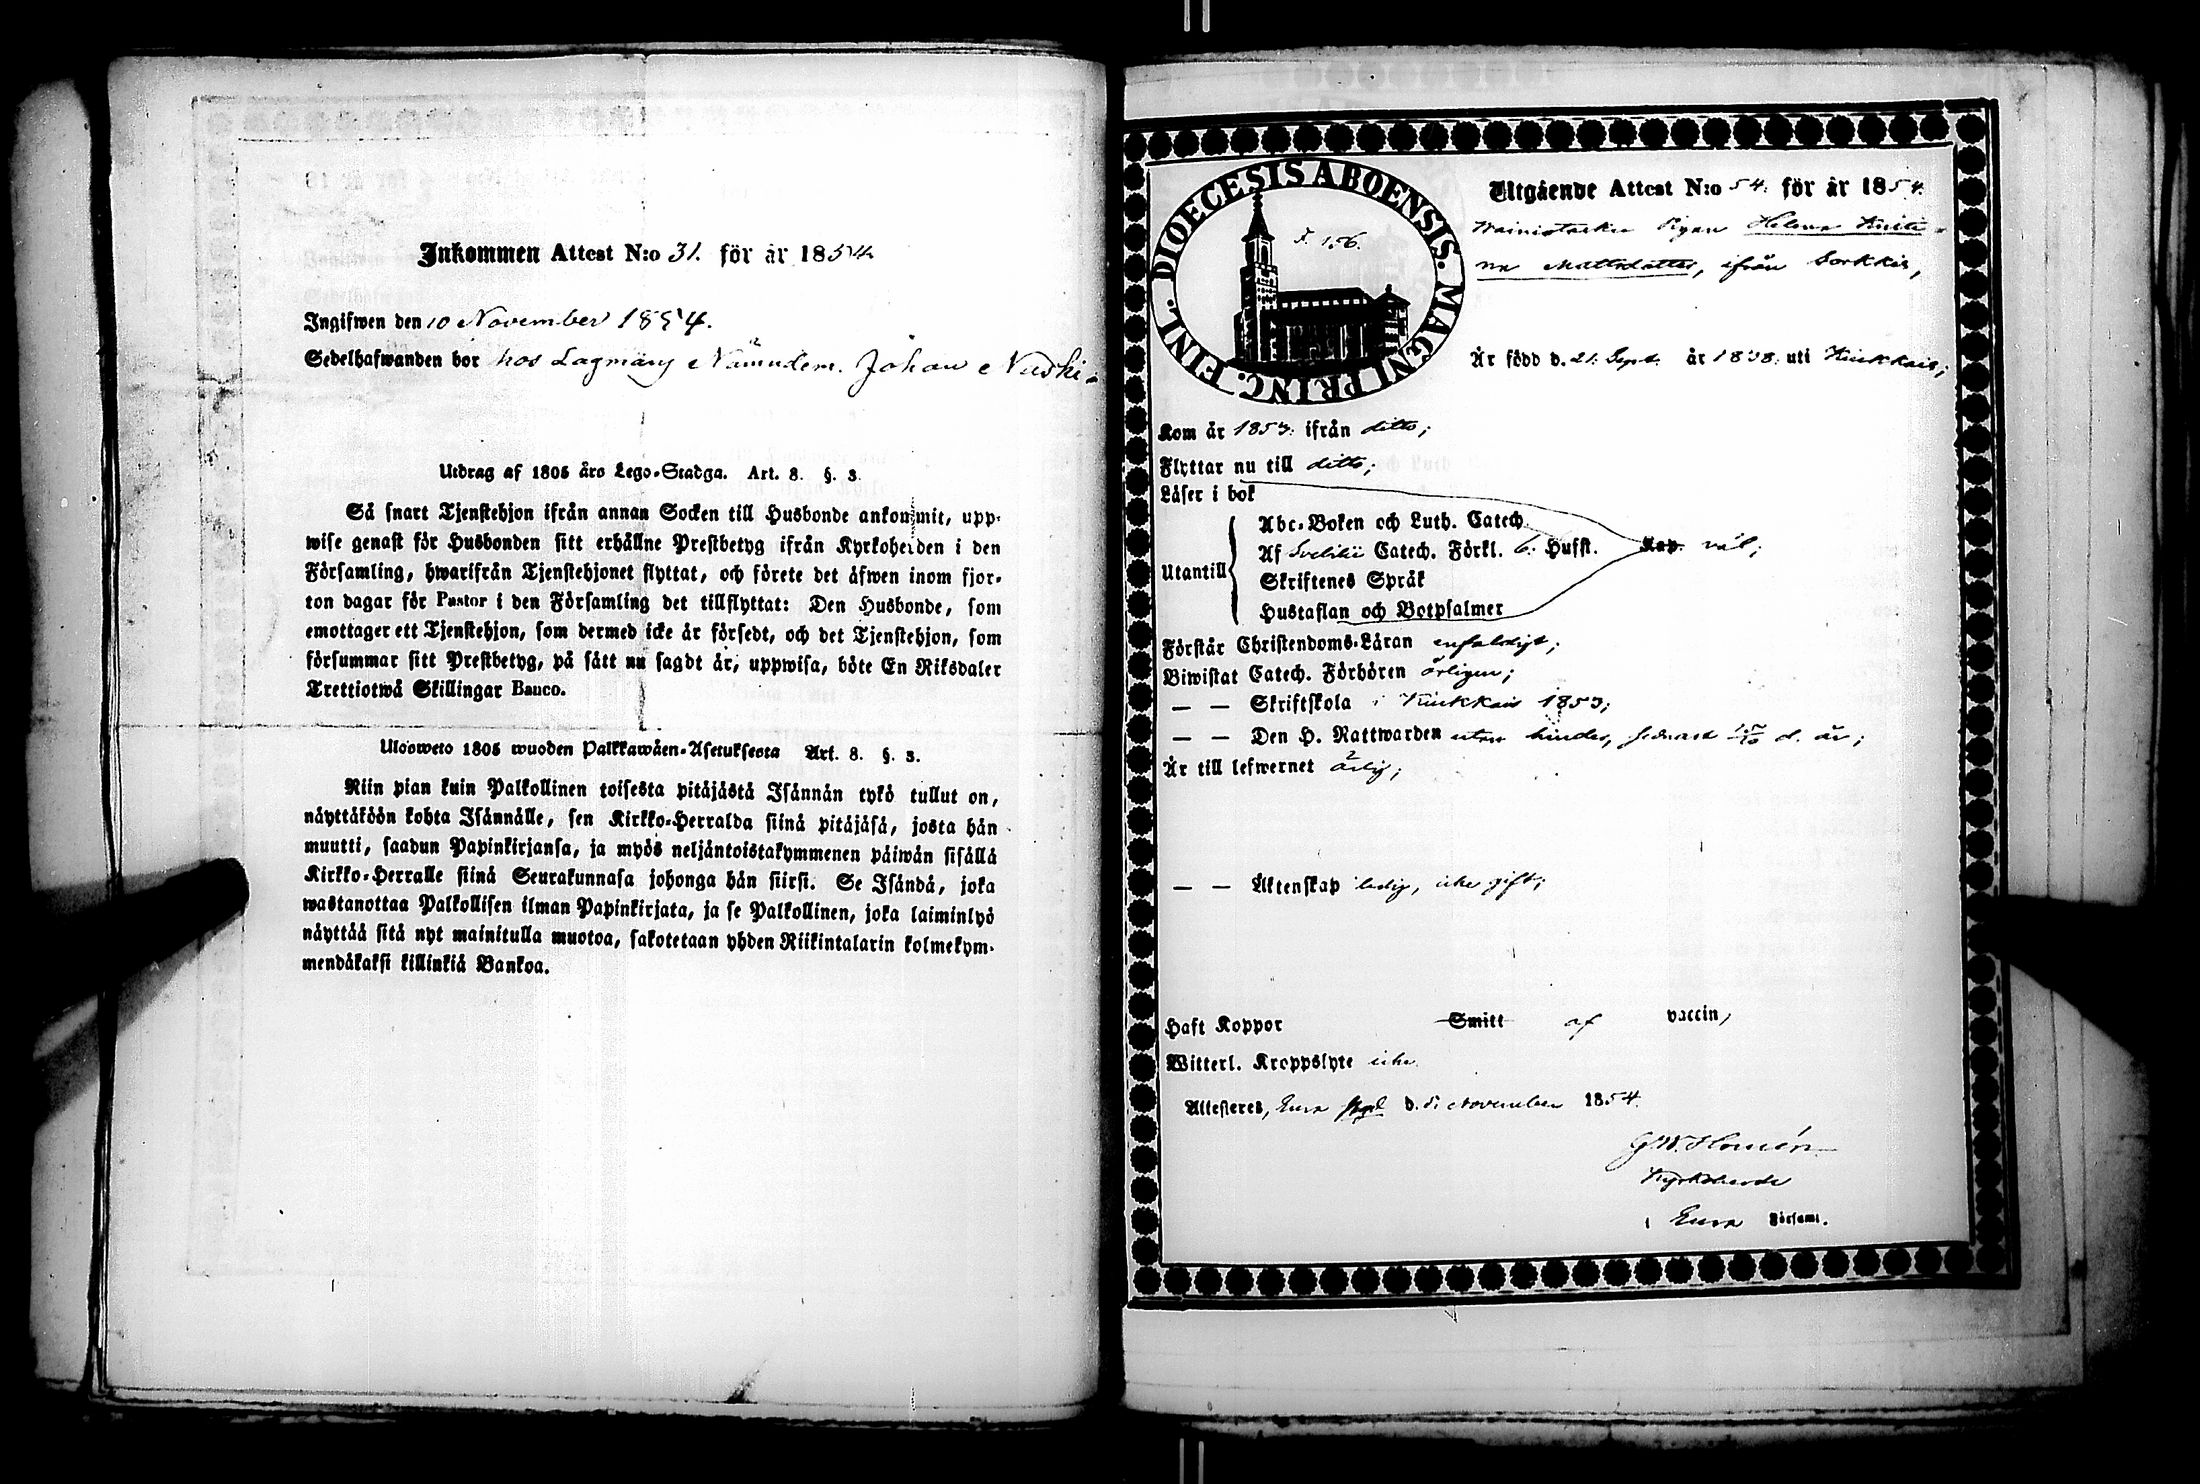 Inkommen Attest N:o 31. för år 1854.
Ingifwen den 10 November 1854.
Sedelhafwanden bor hos Lagmans Nämndem. Johan
Utdrag af 1805 års Lego-Stadga. Art. 8. §. 3.
Så snart Tjenstehjon ifrån annan Socken till Husbonde ankommit, upp-
wise genast för Husbonden sitt erhållne Prestbetyg ifrån Kyrkoherden i den
Församling, hwarifrån Tjenstehjonet flyttat, och förete det äfwen inom fjor-
ton dagar för Pastor i den Församling det tillflyttat: Den Husbonde, som
emottager ett Tjenstehjon, som dermed icke är försedt, och det Tjenstehjon, som
försummar sitt Prestbetyg, på sätt nu sagdt är, uppwisa, böte En Riksdaler
Trettiotwå Skillingar Banco.
Ulosweto 1805 wuoden Palkkawäen-Asetuksesta Art. 8. §. 3.
Niin pian kuin Palkollinen toisesta pitäjästä Isännän tykö tullut on,
näyttäköön kohta Isännälle, sen Kirkko-Herralda siinä pitäjäsä, josta hän
muutti, saadun Papinkirjansa, ja myös neljäntoistakymmenen päiwän sisällä
Kirkko-Herralle siinä Seurakunnasa johonga hän siirsi. Se Isändä, joka
wastanottaa Palkollisen ilman Papinkirjata, ja se Palkollinen, joka laiminlyö
näyttää sitä nyt mainitulla muotoa, sakotetaan yhden Riikintalarin kolmekym-
mendäkaksi killinkiä Bankoa.
DIOECESIS ABOENSIS. MAGNI PRINC. FINL.
F. 156.
Utgående Attest N:o 54. för år 1854.
Pigan Helena Kristi-
na Mattsdotter, ifrån Sorkkis,
Är född d. 21. Sept. år 1838. uti Kiukkais;
Kom år 1853. ifrån ditto;
Flyttar nu till ditto;
Läser i bok
Utantill
Abc-Boken och Luth. Catech.
Af Svebilii Catech. Förkl. 6. Hufst. Kap. väl;
Skriftenes Språk
Hustaflan och Botpsalmer
Förstår Christendoms-Läran enfaldigt;
Biwistat Catech. Förhören årligen;
— — Skriftskola i Kiukkais 1853;
— — Den H. Nattwarden utan hinder, senast 15/10 d. år;
Är till lefwernet ärlig;
— — Äktenskap ledig, icke gift;
Haft Koppor Smitt af vaccin,
Witterl. Kroppslyte icke
Attesteres, Eura Pgd d. 5. November 1854.
G.W. Homén
Kyrkoherde
i Eura Församl.